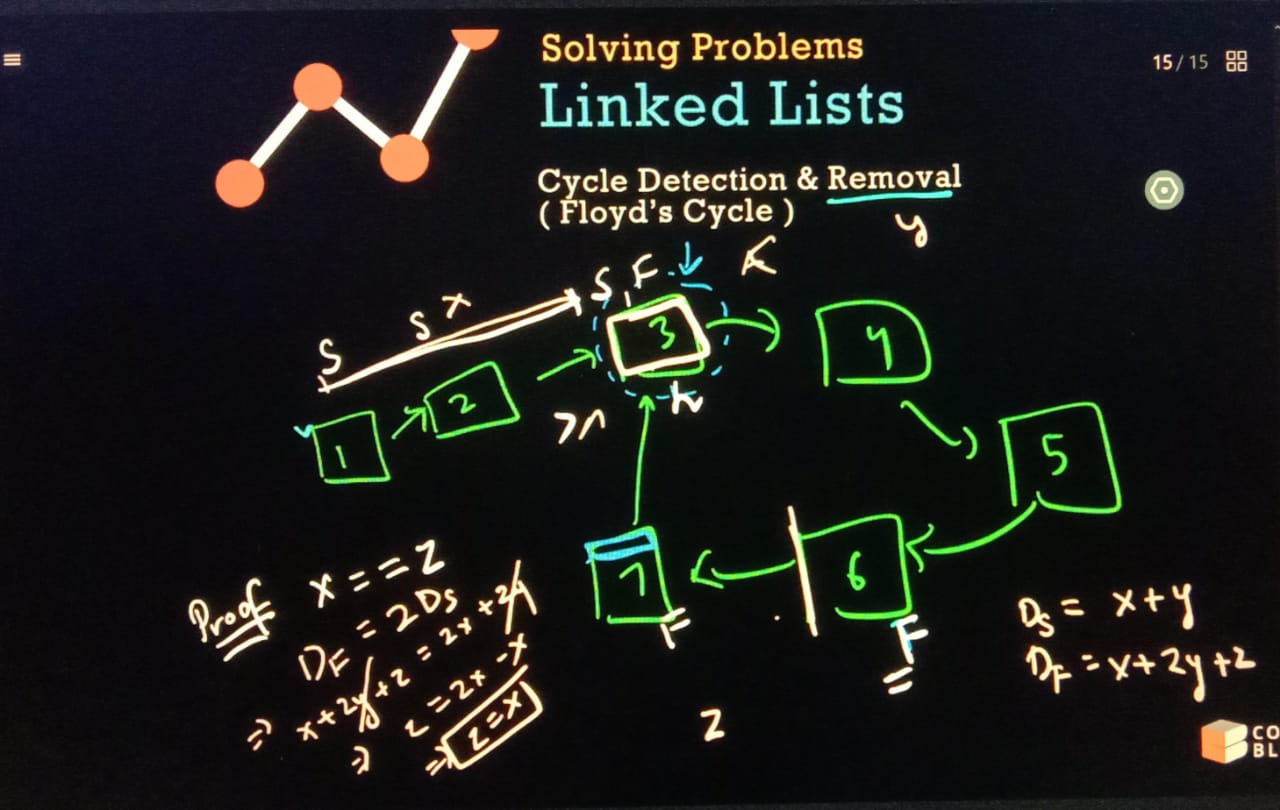 Solving Problems
15 / 15
Linked Lists
Cycle Detection & Removal
( Floyd's Cycle )
y
S, F
S x
S
3
4
2
1
5
7
6
F
F
Proof x == z
DF = 2Ds
⇒ x+2y+z = 2x+2y
⇒ z = 2x-x
⇒ z=x
Ds = x+y
DF = x+2y+z
z
CO
BL